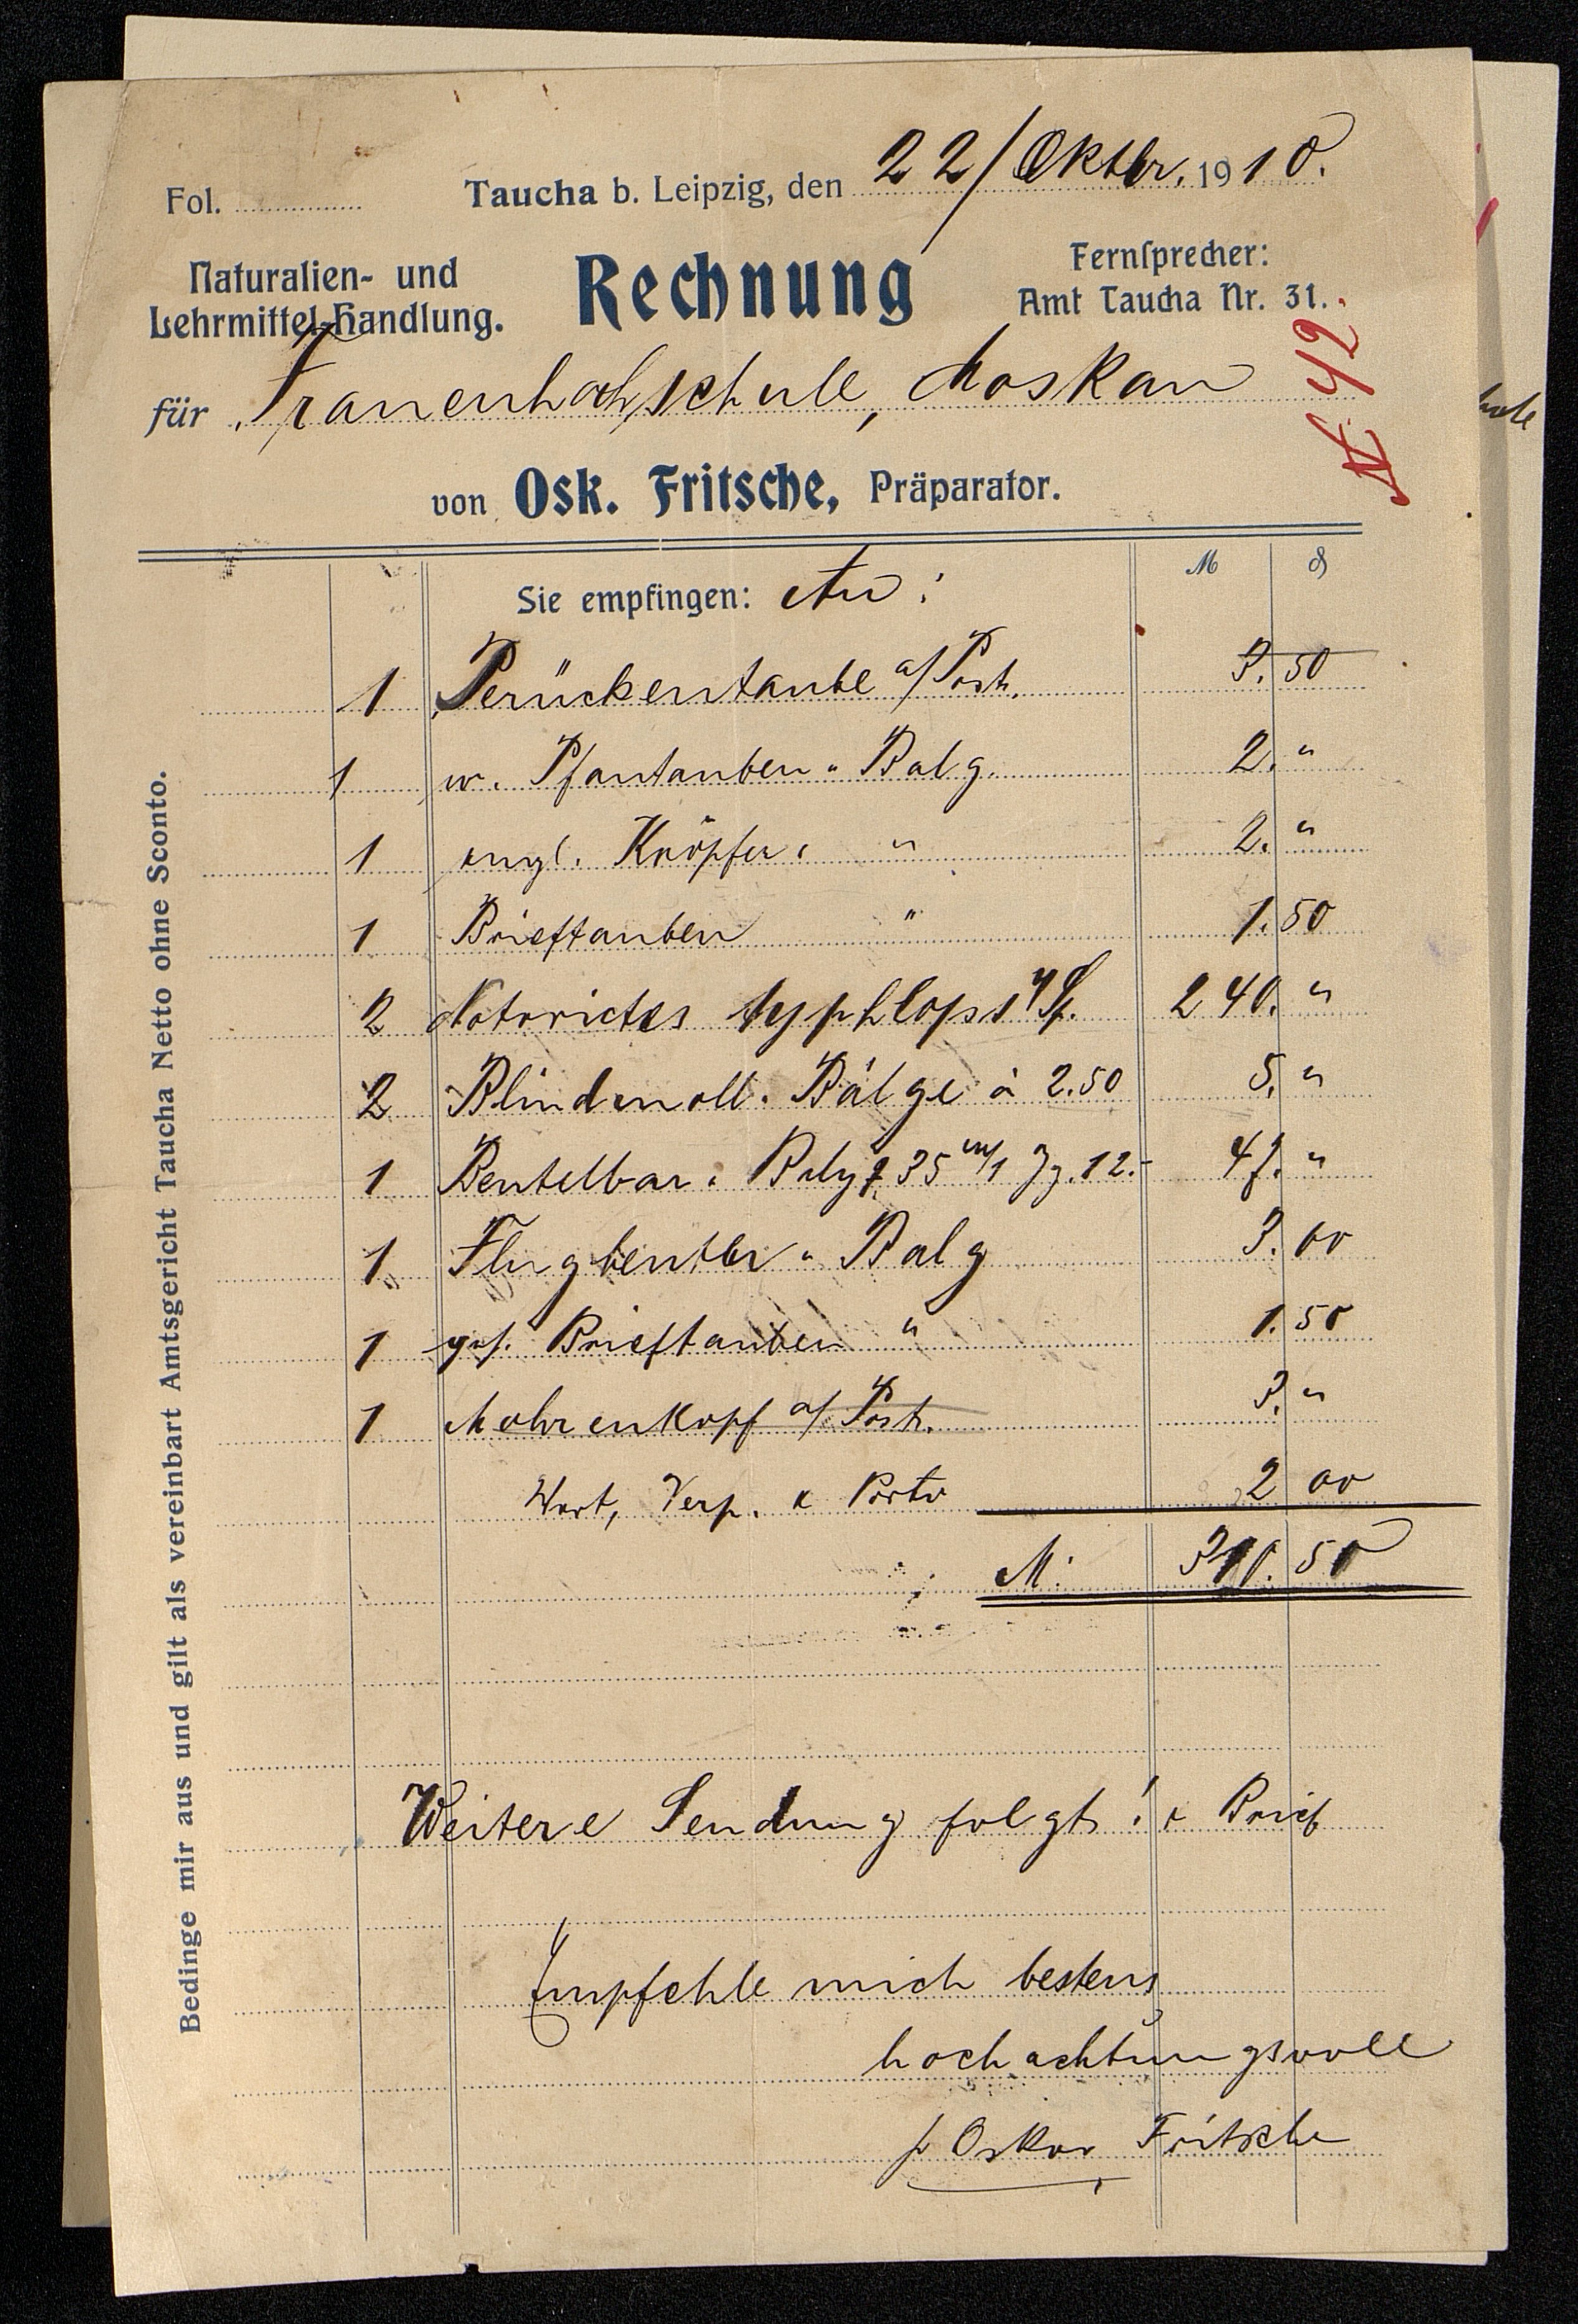 Fol.
Taucha b. Leipzig, den 22/Oktbr. 1910.
Naturalien- und
Lehrmittel-Handlung.
Rechnung
Fernsprecher:
Amt Taucha Nr. 31.
für Frauenhochschule, Moskau
42
von Osk. Fritsche, Präparator.
Sie empfingen: An:
M ₰
1 Perückentaube a/Post. 3. 50
1 w. Pfautauben " Balg. 2. "
1 engl. Kröpfer. " 2. "
1 Brieftauben " 1. 50
2 Notorictes typhlops 240. "
2 Blindmoll. Bälge à 2.50 5. "
1 Beutelbär. Balg 35 m/1 Jg. 12.- 47. "
1 Flugbeutler " Balg 3. 00
1 Brieftauben " 1. 50
1 Mohrenkopf a/ Post. 3. "
Wert, Verp. & Porto 2 00
M. 310. 50
Weitere Sendung folgt! & Brief
Empfehle mich bestens
hochachtungsvoll
p Oskar Fritsche
Bedinge mir aus und gilt als vereinbart Amtsgericht Taucha Netto ohne Sconto.